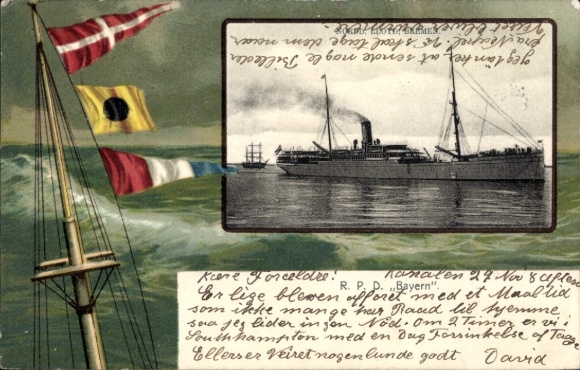 NORDD. LLOYD, BREMEN.
jeg tænker at sende nogle Billeder
fra Neapel. I skal tage dem naar
R. P. D. „Bayern".
Kære Forældre! Kanalen 27 Nov 8 Aften
Er lige bleven afforet med et Maaltid
som ikke mange har Raad til hjemme
saa jeg lider ingen Nød. Om 2 Timer er vi i
Southhampton med en Dag Forsinkelse af Taage
Ellers er Veiret nogenlunde godt David